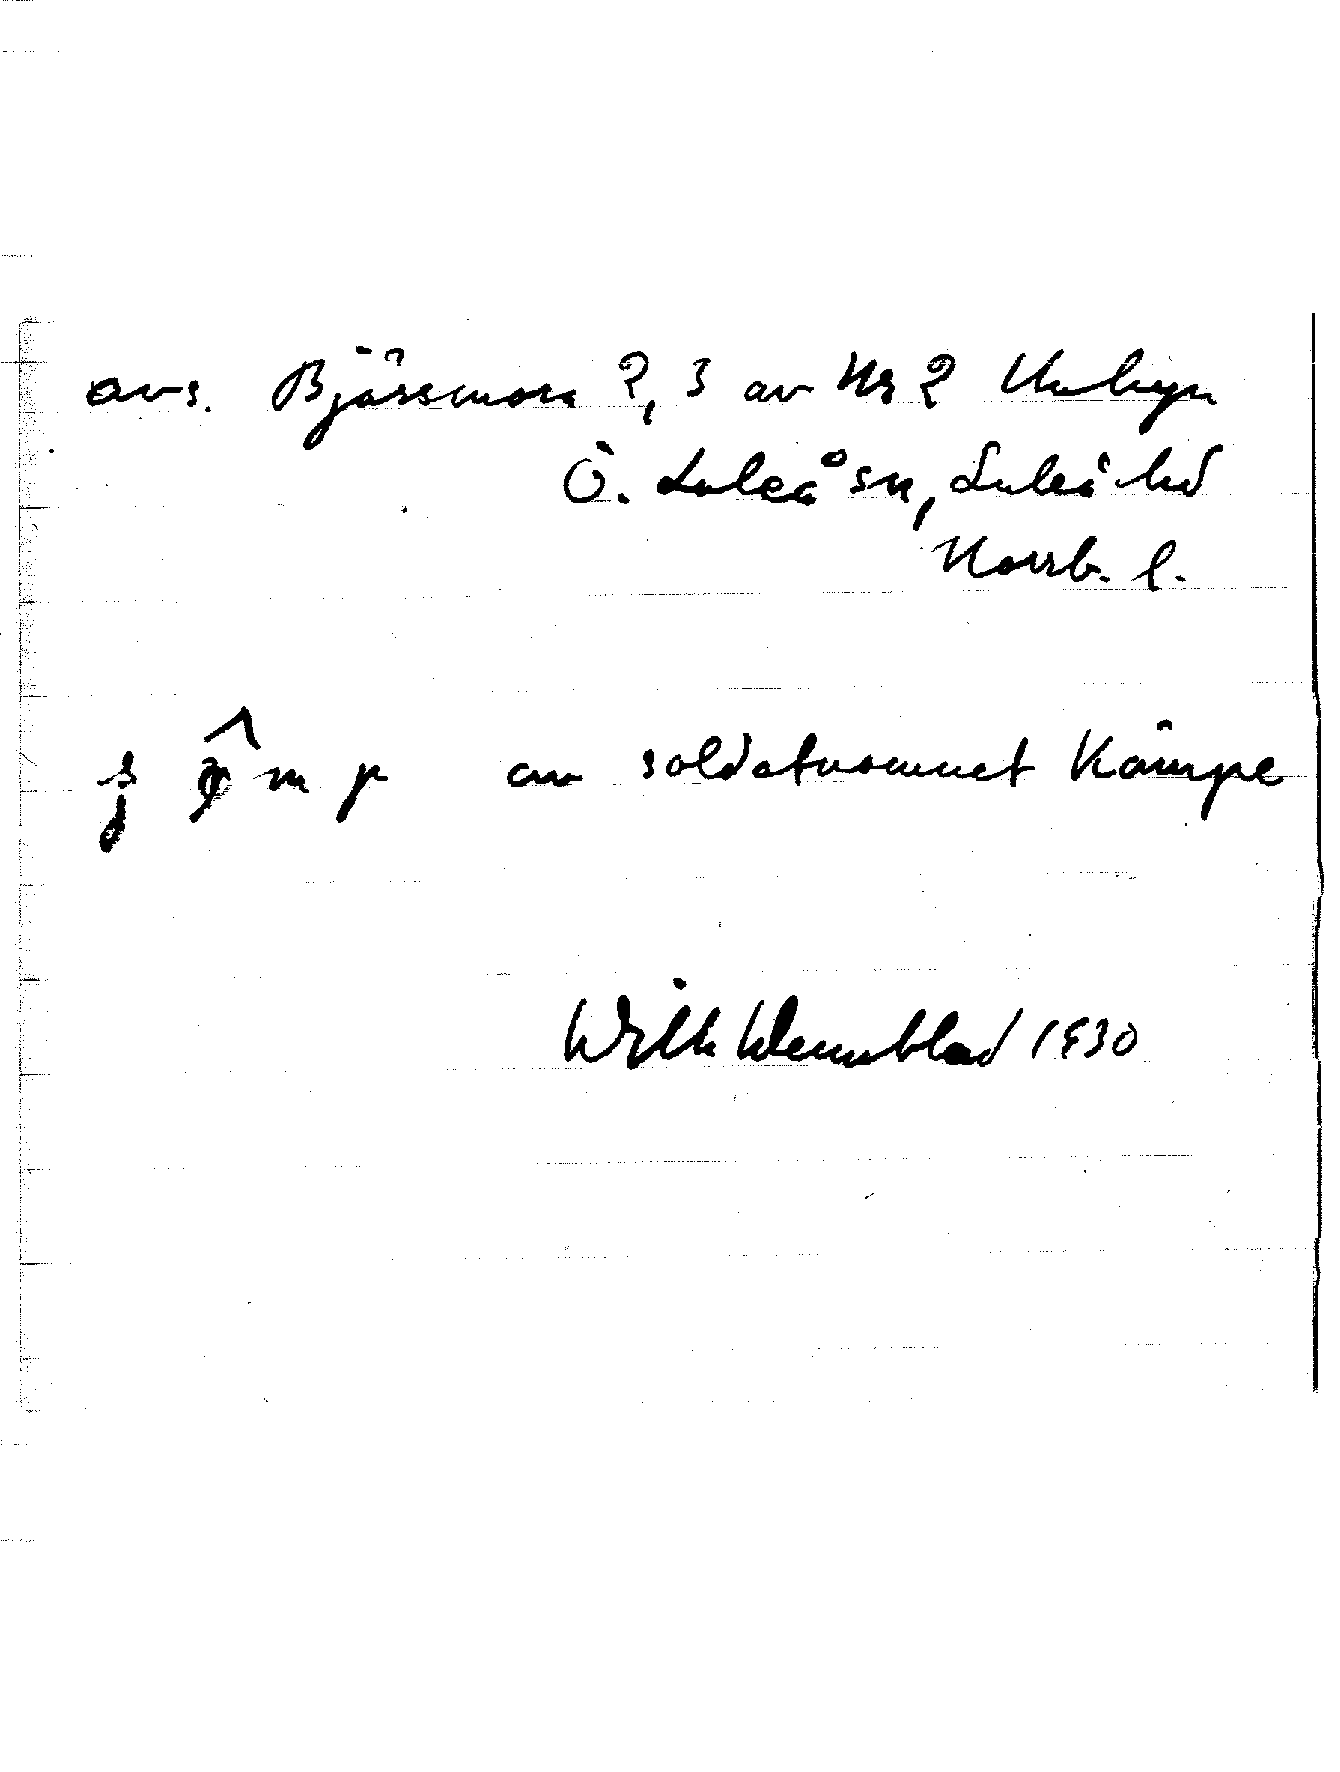 avs. Björsmora 2, 3 av Nr 2 Unbyn
Ö. Luleå sn, Luleå hd
Norrb. l.
m p av soldatnamnet Kämpe
Wilh Wennblad 1930